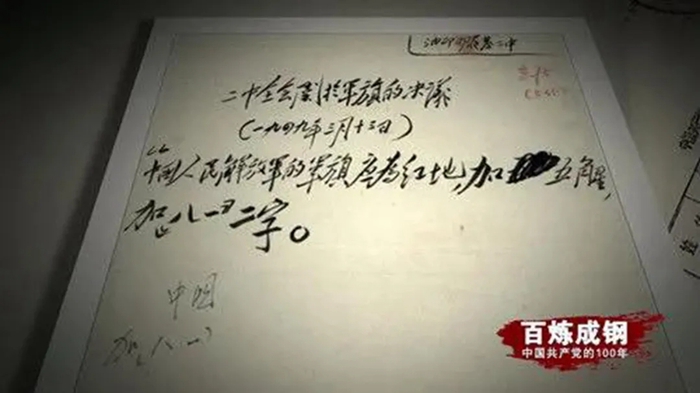 二中全会关于军旗的决议
（一九四九年三月十三日）
“中国人民解放军的军旗应为红地，加五角星，
加“八一”二字。
中国
加八一
百炼成钢
中国共产党的100年